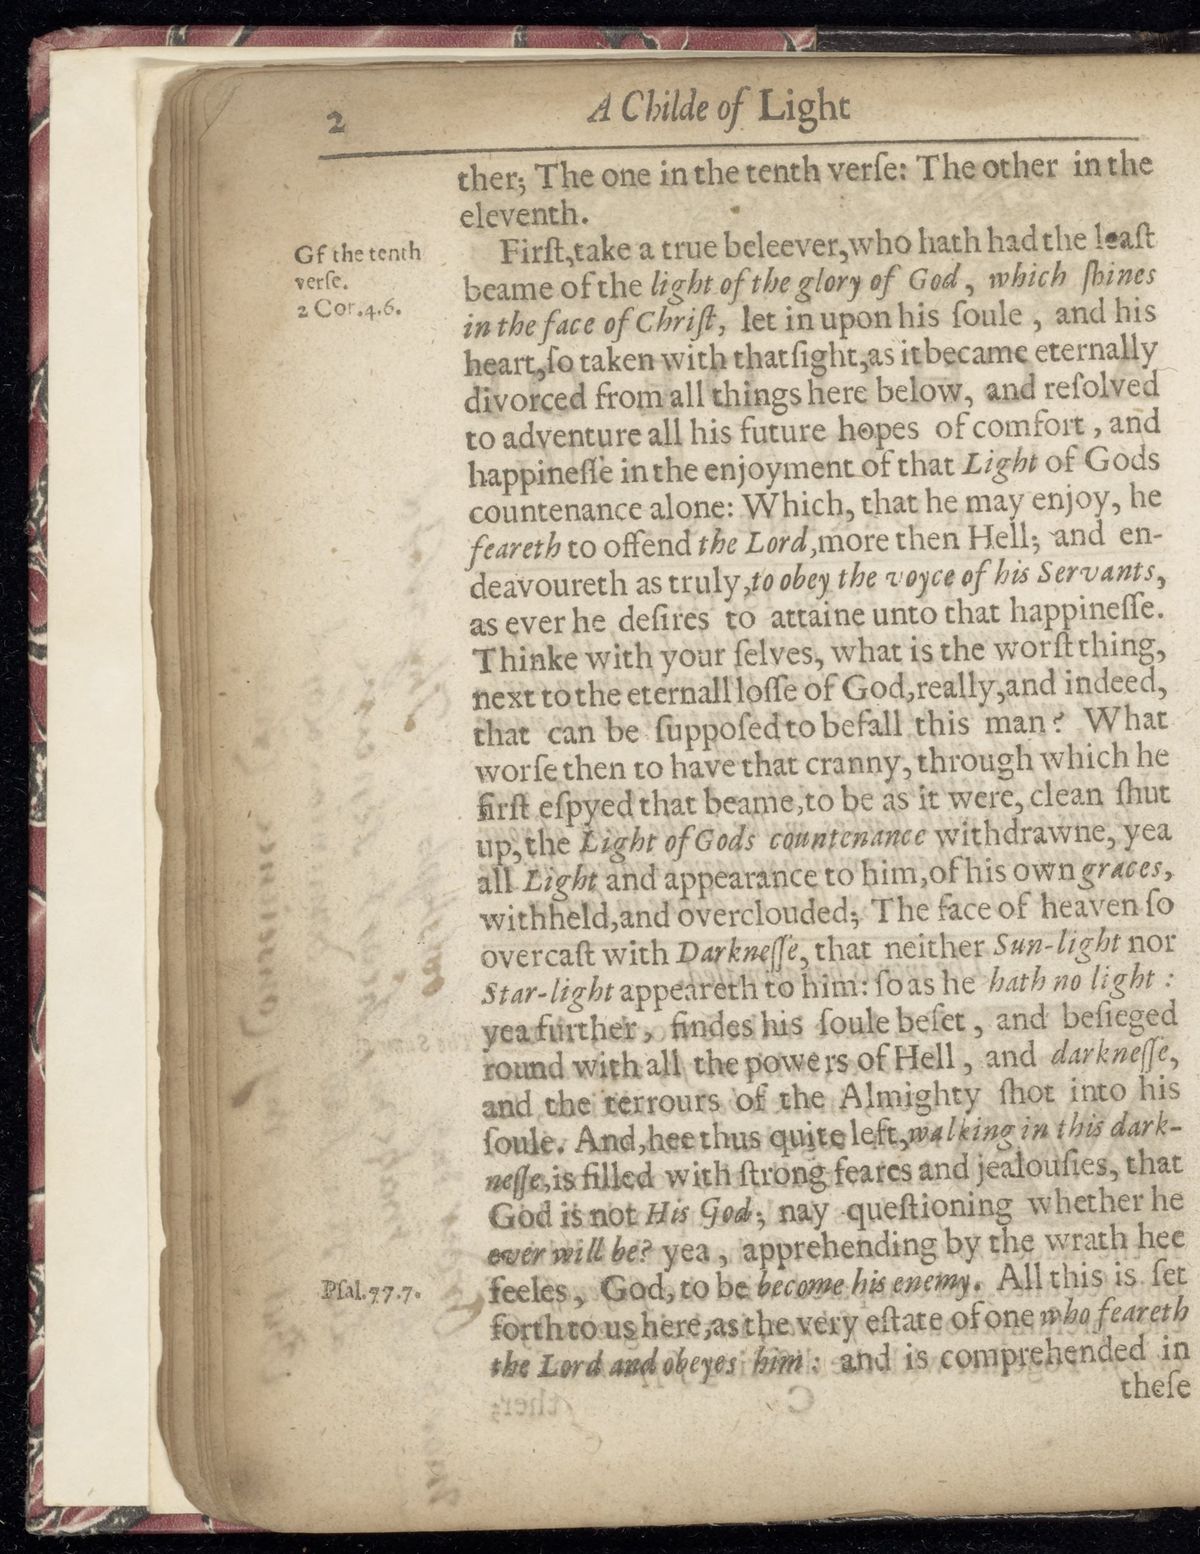 2
A Childe of Light
ther; The one in the tenth verſe: The other in the
eleventh.
Gf the tenth
verſe.
2 Cor.4.6.
Firſt,take a true beleever,who hath had the leaſt
beame of the light of the glory of God, which ſhines
in the face of Chriſt, let in upon his ſoule, and his
heart,ſo taken with that ſight,as it became eternally
divorced from all things here below, and reſolved
to adventure all his future hopes of comfort, and
happineſſe in the enjoyment of that Light of Gods
countenance alone: Which, that he may enjoy, he
feareth to offend the Lord,more then Hell; and en-
deavoureth as truly,to obey the voyce of his Servants,
as ever he deſires to attaine unto that happineſſe.
Thinke with your ſelves, what is the worſt thing,
next to the eternall loſſe of God,really,and indeed,
that can be ſuppoſed to befall this man? What
worſe then to have that cranny, through which he
firſt eſpyed that beame,to be as it were, clean ſhut
up,the Light of Gods countenance withdrawne, yea
all Light and appearance to him,of his own graces,
withheld,and overclouded; The face of heaven ſo
overcaſt with Darkneſſe, that neither Sun-light nor
Star-light appeareth to him: ſo as he hath no light:
yea further, findes his ſoule beſet, and beſieged
round with all the powers of Hell, and darkneſſe,
and the terrours of the Almighty ſhot into his
ſoule. And,hee thus quite left,walking in this dark-
neſſe,is filled with ſtrong feares and jealouſies, that
God is not His God; nay queſtioning whether he
ever will be? yea, apprehending by the wrath hee
Pſal.77.7.
feeles, God, to be become his enemy. All this is ſet
forth to us here,as the very eſtate of one who feareth
the Lord and obeyes him: and is comprehended in
theſe